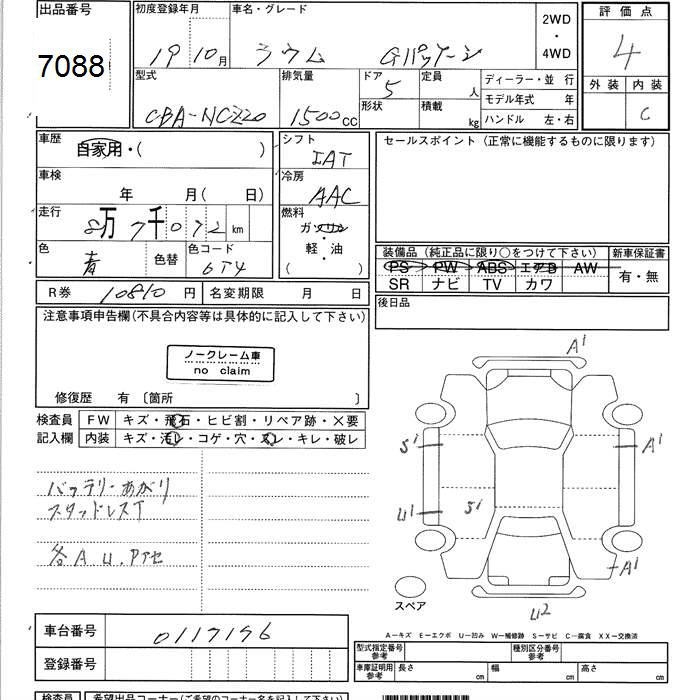 出品番号
7088
初度登録年月
19 10月
車名・グレード
ラウム Gパッケージ
2WD
・
4WD
評価点
4
外装 内装
C
型式
CBA-NCZ20
排気量
1500 CC
ドア
5
形状
定員
人
積載
kg
ディーラー・並行
モデル年式 年
ハンドル 左・右
車歴
自家用・( )
車検
年 月( 日)
走行
8万7千072 km
色
青
色替
色コード
6T4
シフト
IAT
冷房
AAC
燃料
ガソリン
・
軽・油
( )
セールスポイント (正常に機能するものに限ります)
装備品 (純正品に限り○をつけて下さい)
新車保証書
PS PW ABS エアB AW
SR ナビ TV カワ
有・無
後日品
R券 10810 円
名変期限 月 日
注意事項申告欄(不具合内容等は具体的に記入して下さい)
ノークレーム車
no claim
修復歴 有 〔箇所 〕
検査員
記入欄
FW キズ・飛石・ヒビ割・リペア跡・×要
内装 キズ・汚レ・コゲ・穴・スレ・キレ・破レ
バッテリーあがり
スタッドレスT
各A U.Pアセ
A1
S1
A1
U1
S1
A1
U2
スペア
A−キズ E−エクボ U−凹み W−補修跡 S−サビ C−腐食 XX−交換済
車台番号
0117196
登録番号
型式指定番号
参考
種別区分番号
参考
車庫証明用
参考
長さ cm
幅 cm
高さ cm
検査員
希望出品コーナー(ご希望のコーナー名を記入して下さい)